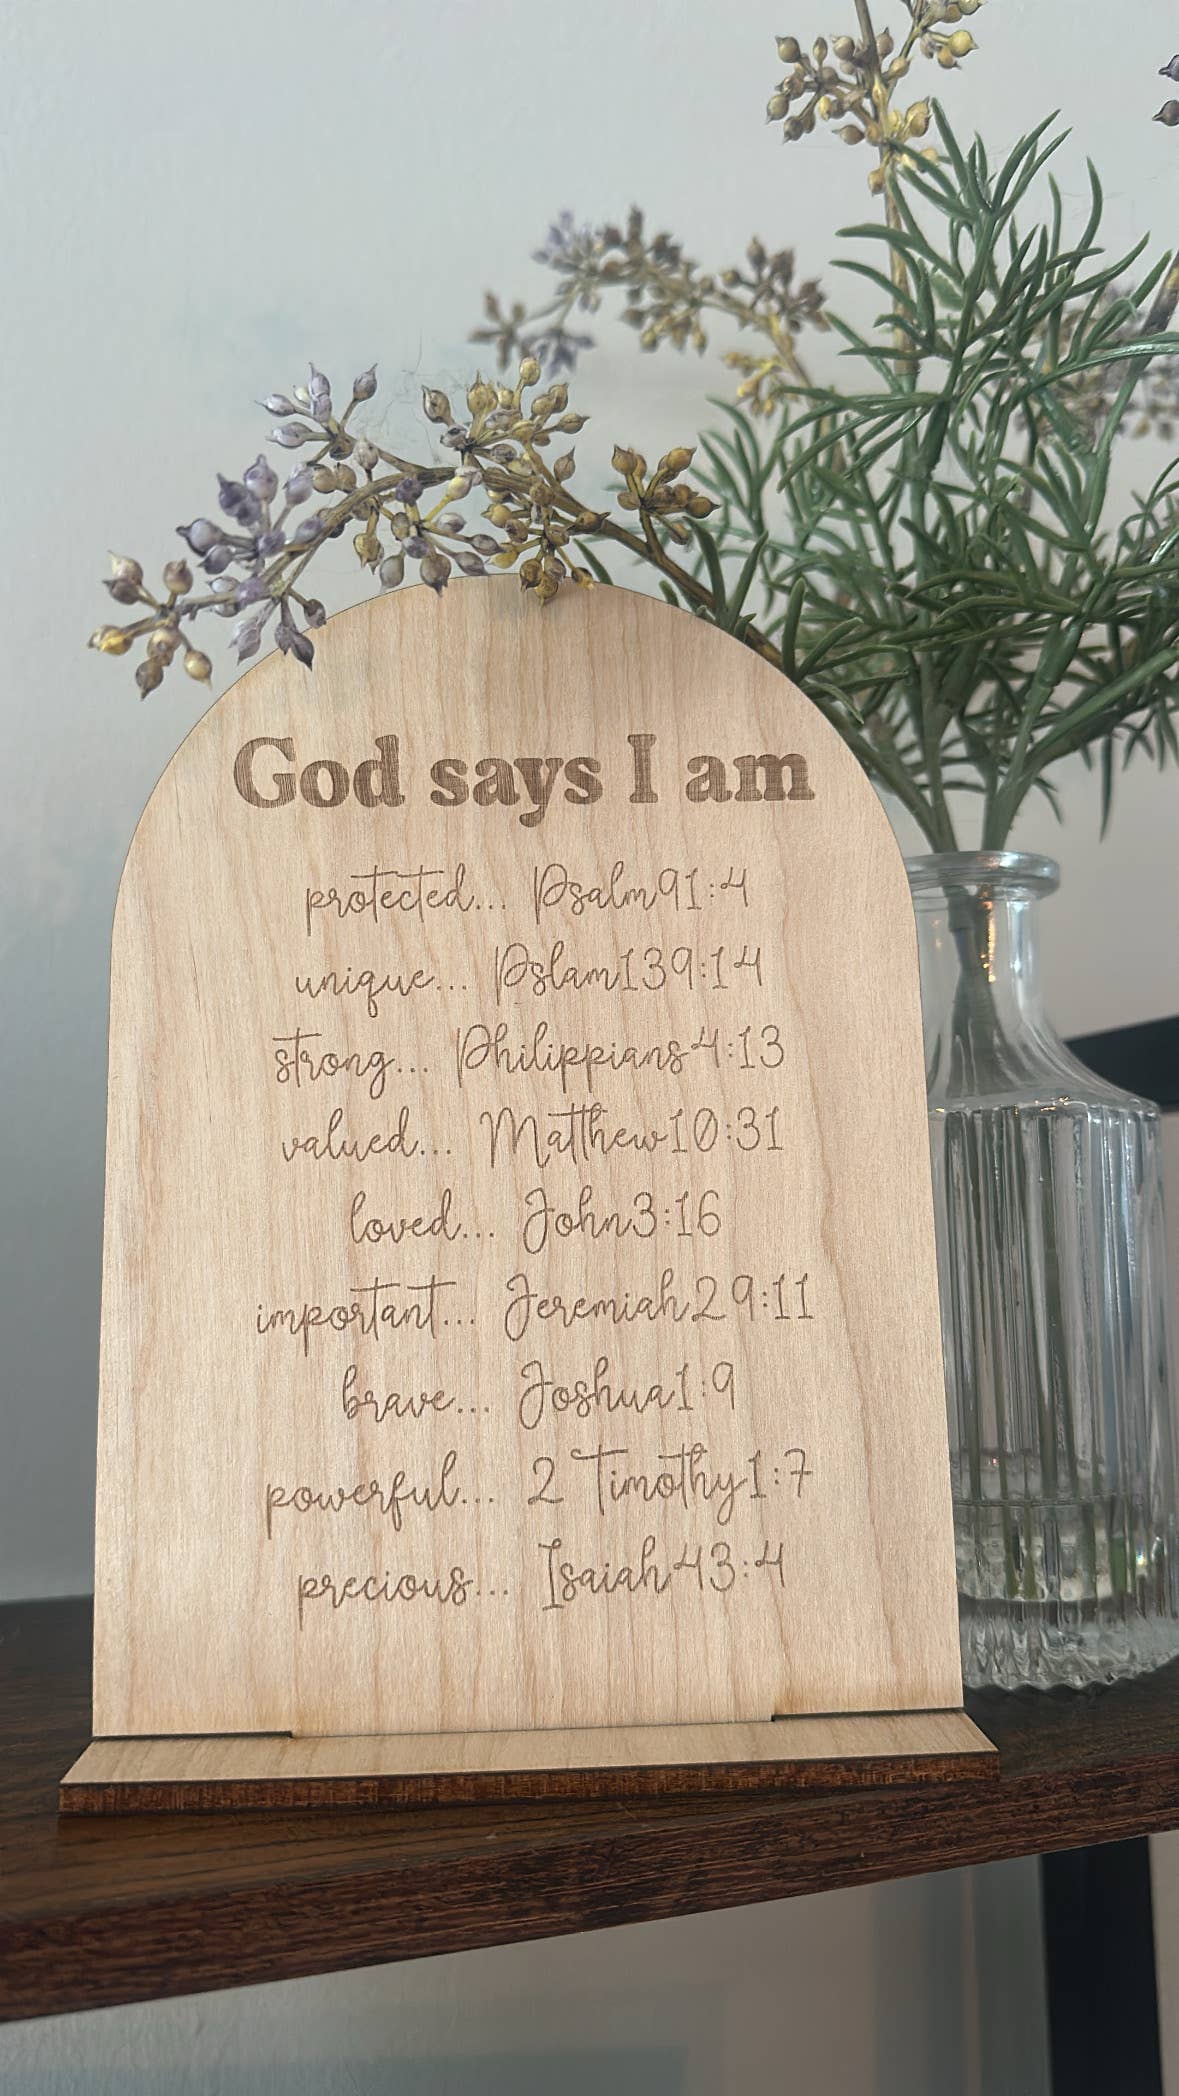 God says I am
protected... Psalm91:4
unique... Pslam139:14
strong... Philippians4:13
valued... Matthew10:31
loved... John3:16
important... Jeremiah29:11
brave... Joshua1:9
powerful... 2 Timothy1:7
precious... Isaiah43:4